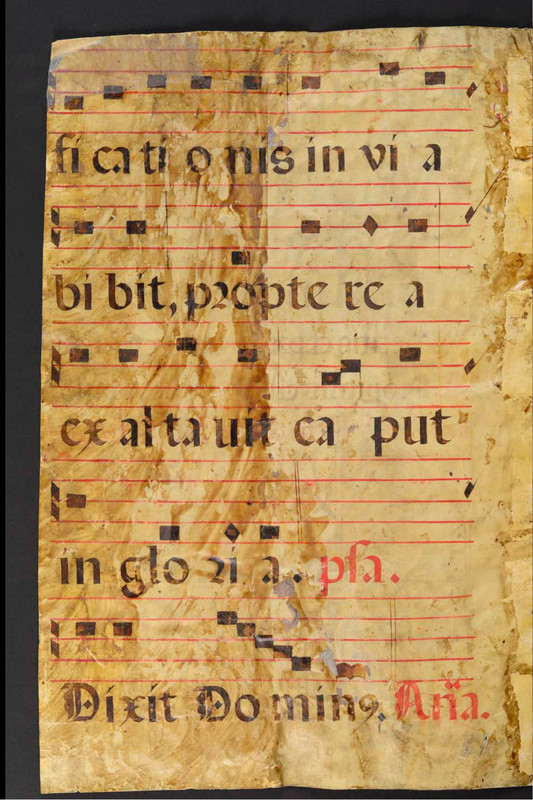 fi ca ti o nis in vi a
bi bit, propte re a
ex al ta uit ca put
in glo ri a. psa.
Dixit Do minꝰ. Aña.